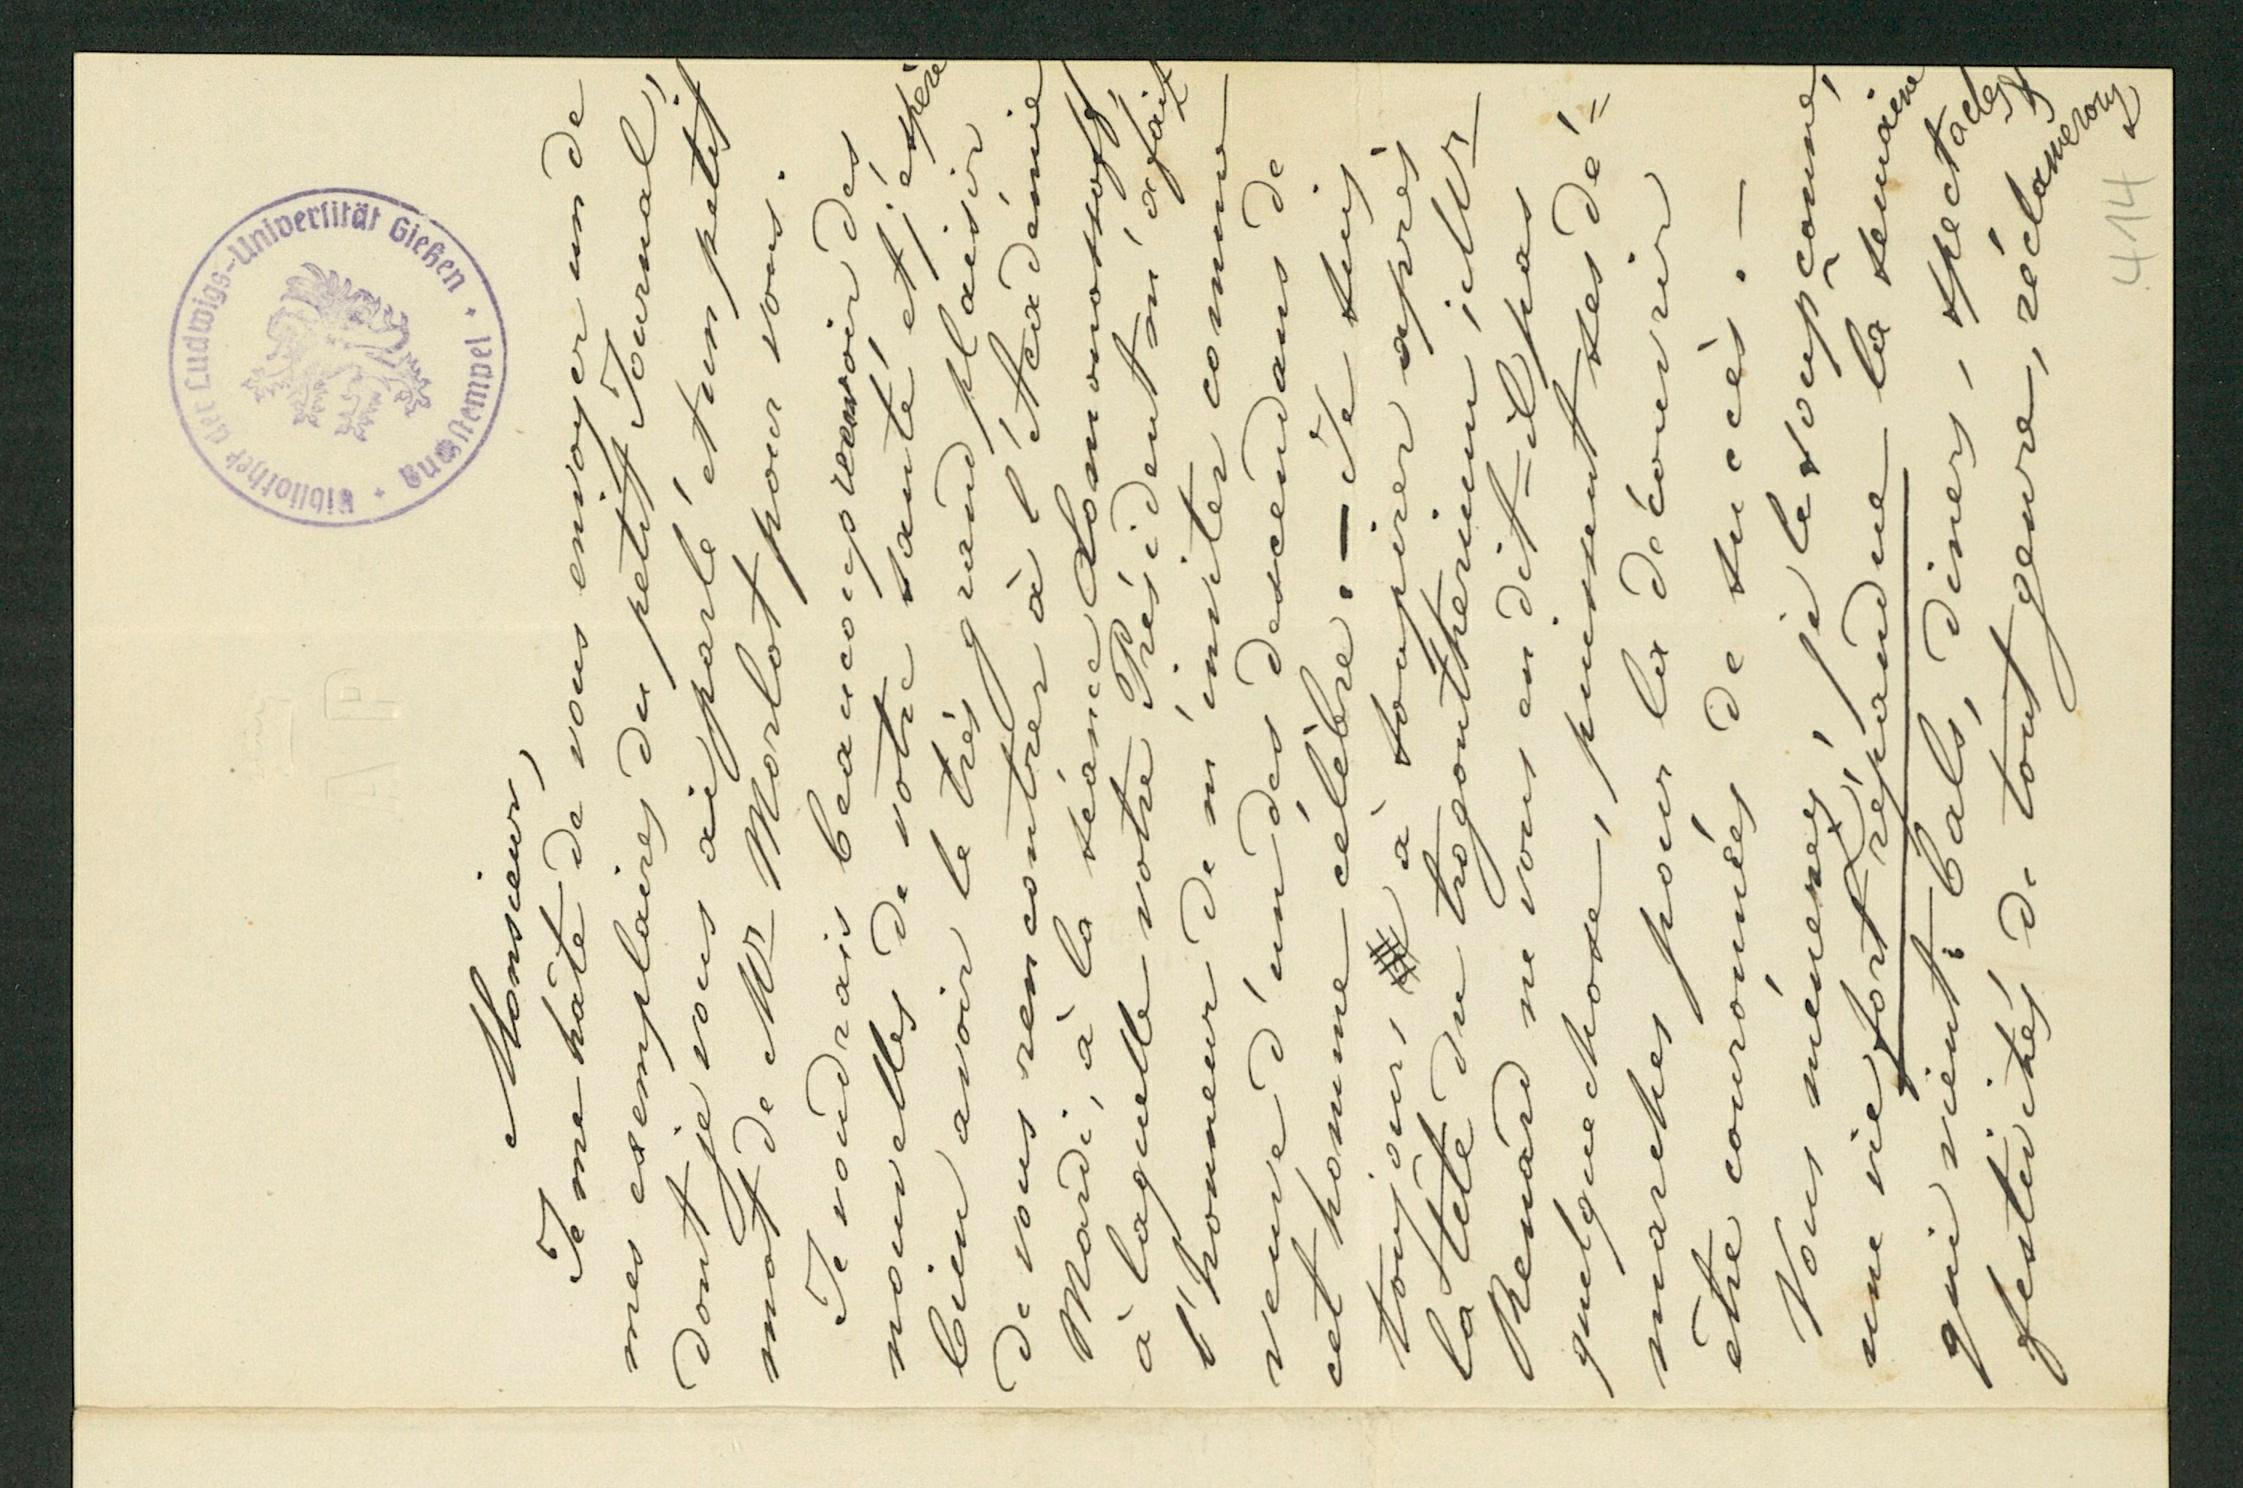 Bibliothek der Ludwigs-Universität Gießen
Ausstempel
AP
Monsieur,
Je me hâte de vous envoyer un de
mes exemplaires du petit Journal,
dont je vous ai parlé et un petit
mot de Mr Morlot pour vous.
Je voudrais beaucoup recevoir des
nouvelles de votre santé et j'éspère
bien avoir le très grand plaisir
de vous rencontrer à l'Académie
Mardi, à la séance Lomonossoff,
à laquelle votre Président m'a fait
l'honneur de m'inviter comme
veuve d'un des descendans de
cet homme célèbre. — Je suis
toujours à soupirer après
la tête du trogontherium; Mr
Renard ne vous en dit-il pas
quelque chose, puissent ses dé=
marches pour la découvrir
être couronnées de succès. —
Vous mènerez, je le soupçonne,
une vie fort répandue la semaine
qui vient: bals, diners, spectacles,
festivités de tout genre, réclamerons
414